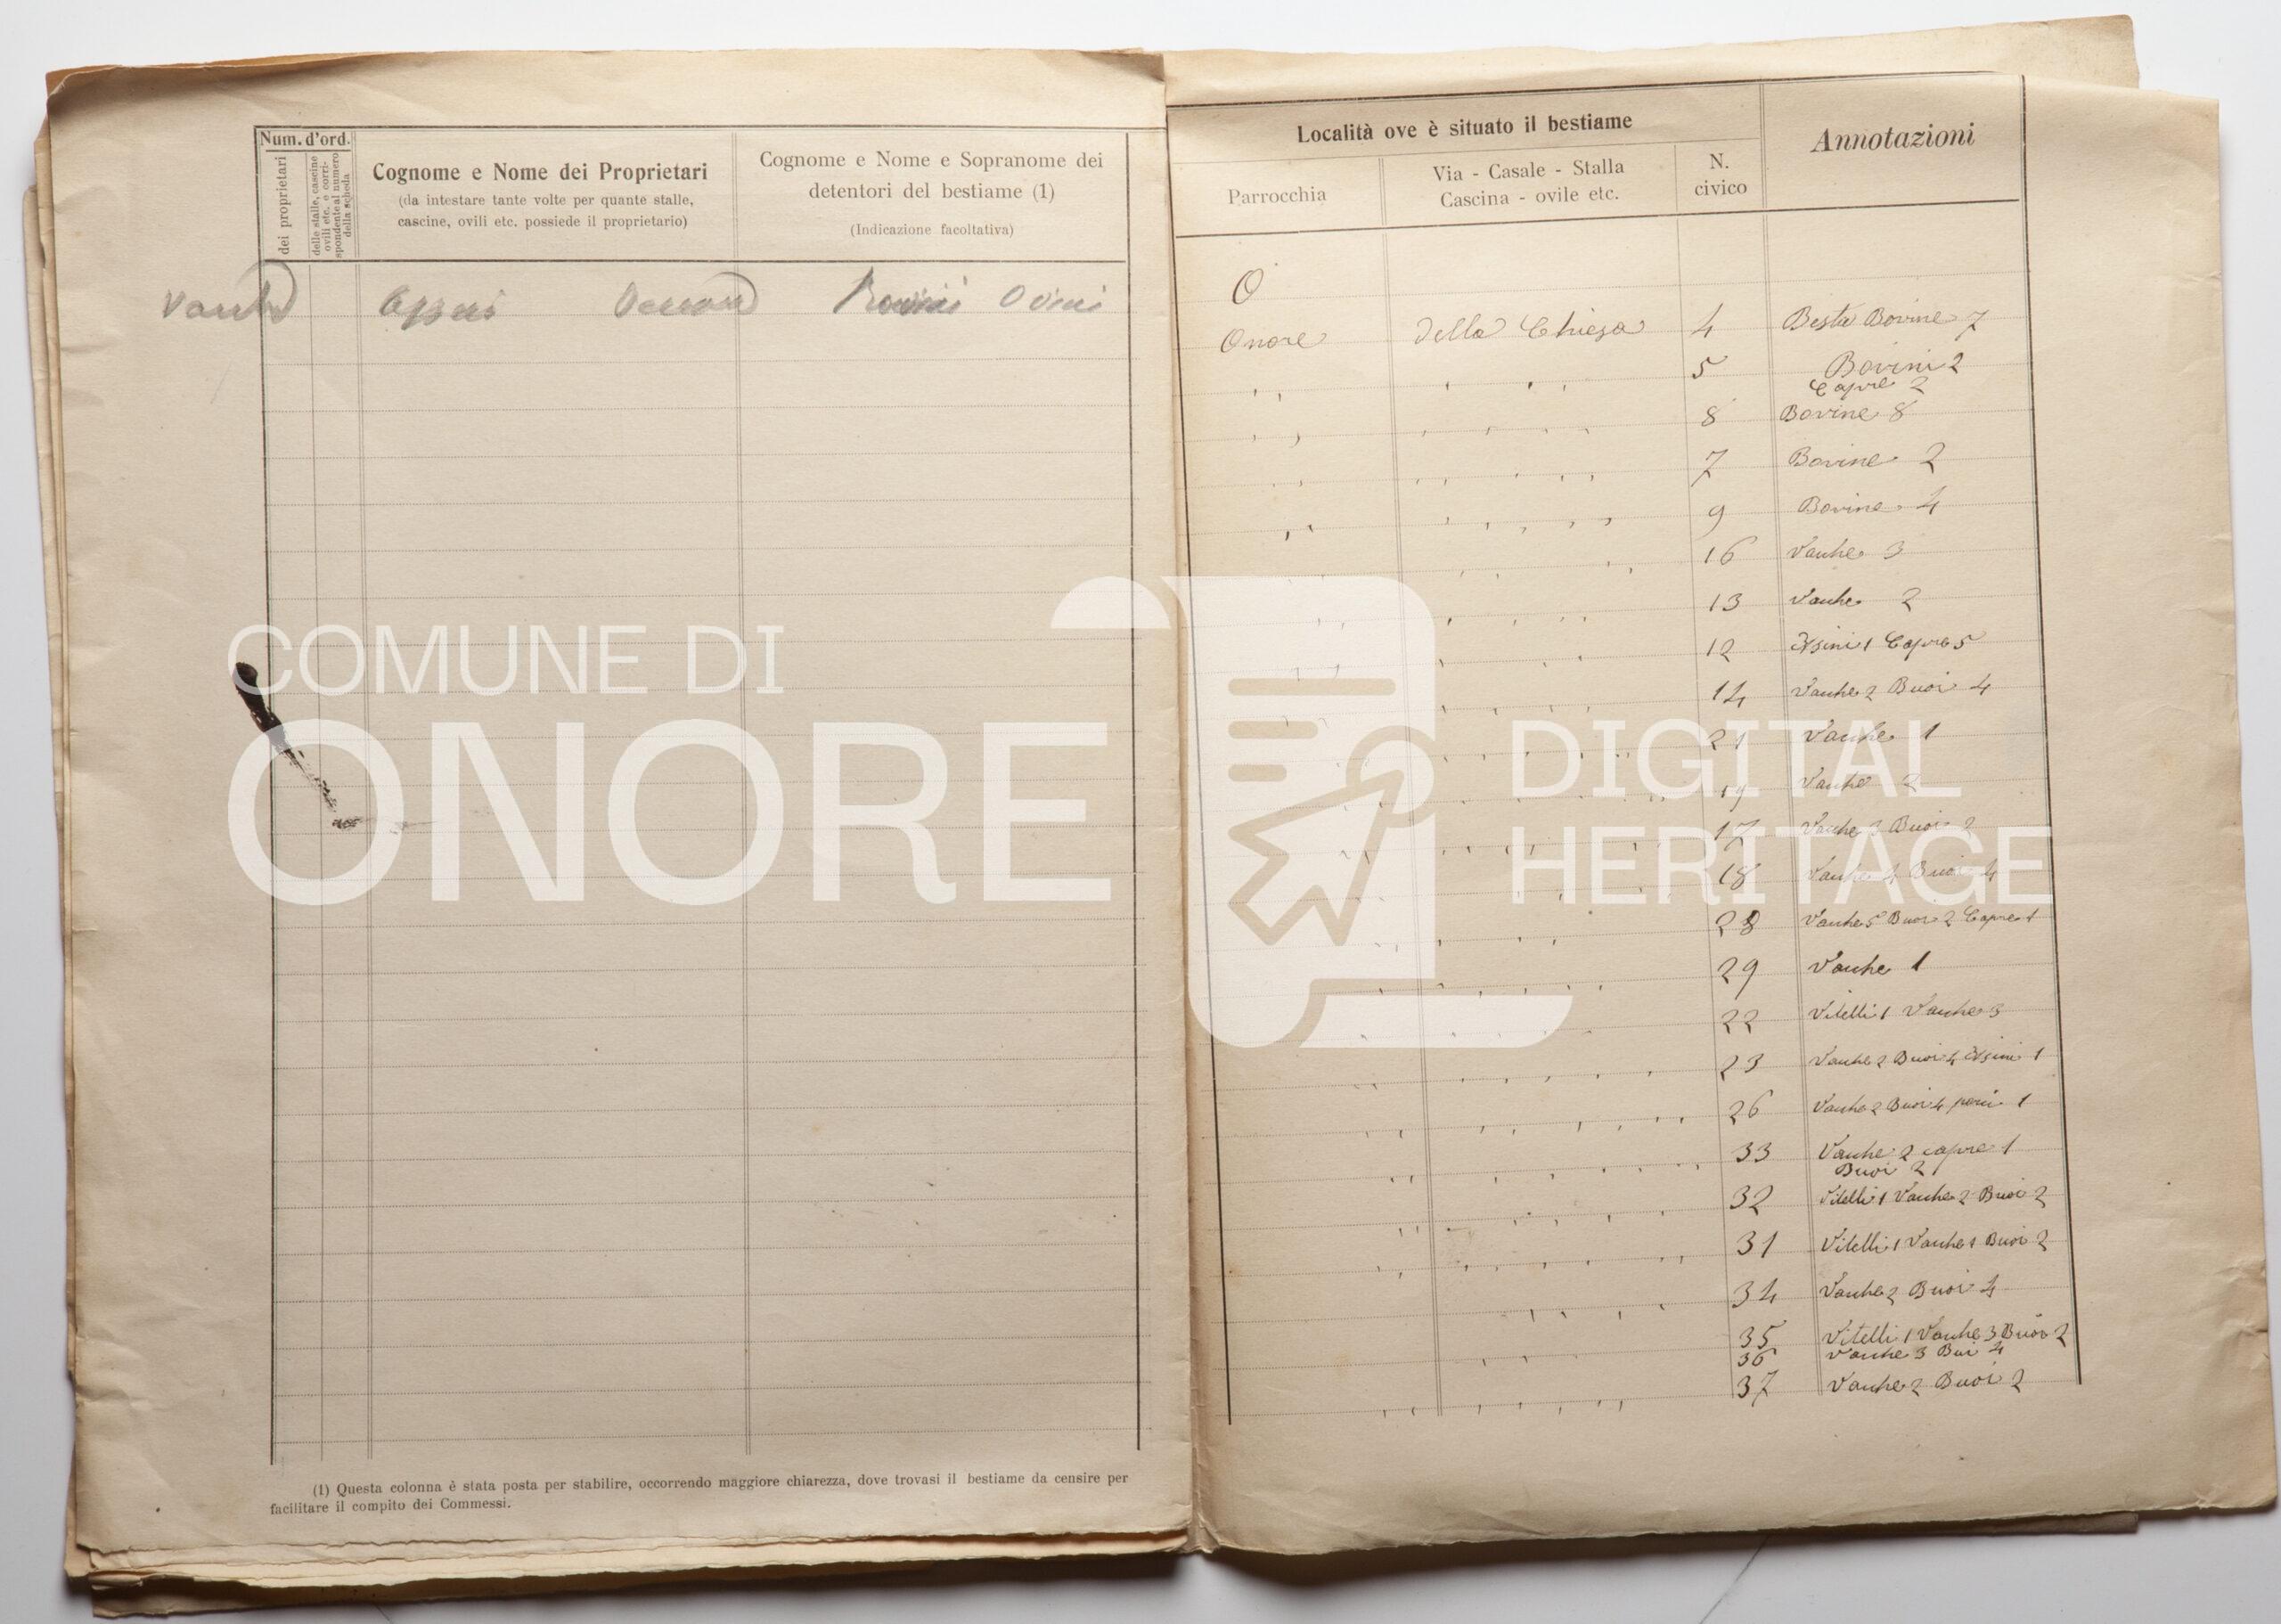 Num. d'ord.
dei proprietari
delle stalle, cascine
ovili etc. e corri-
spondente al numero
della scheda
Cognome e Nome dei Proprietari
(da intestare tante volte per quante stalle,
cascine, ovili etc. possiede il proprietario)
Cognome e Nome e Sopranome dei
detentori del bestiame (1)
(Indicazione facoltativa)
Bovini Ovini
(1) Questa colonna è stata posta per stabilire, occorrendo maggiore chiarezza, dove trovasi il bestiame da censire per
facilitare il compito dei Commessi.
Località ove è situato il bestiame
Annotazioni
Parrocchia
Via - Casale - Stalla
Cascina - ovile etc.
N.
civico
O
Onore della Chiesa 4 Bestie Bovine 7
" " " " 5 Bovini 2
Capre 2
" " " " 8 Bovine 8
" " " " 7 Bovine 2
" " " " 9 Bovine 4
16 Vauhe 3
13 Vauhe 2
12 Asini 1 Capre 5
14 Vauhe 2 Buoi 4
21 Vauhe 1
19 Vauhe 2
17 Vauhe 3 Buoi 2
18 Vauhe 4 Buoi 4
28 Vauhe 5 Buoi 2 Capre 1
29 Vauhe 1
22 Vitelli 1 Vauhe 3
23 Vauhe 2 Buoi 4 Asini 1
26 Vauhe 2 Buoi 4 1
33 Vauhe 2 capre 1
Buoi 2
32 Vitelli 1 Vauhe 2 Buoi 2
31 Vitelli 1 Vauhe 1 Buoi 2
34 Vauhe 2 Buoi 4
35 Vitelli 1 Vauhe 3 Buoi 2
36 Vauhe 3 Buoi 4
37 Vauhe 2 Buoi 2
COMUNE DI
ONORE
DIGITAL
HERITAGE